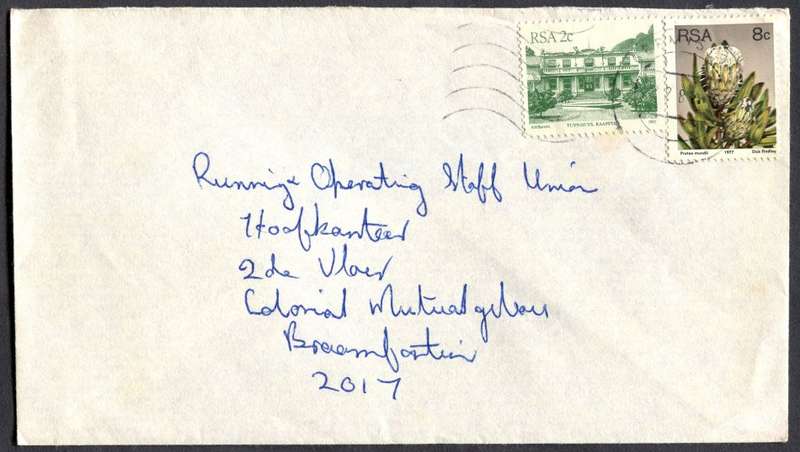 RSA 2c
TUYNHUYS, KAAPSTAD
RSA 8c
Protea mundii 1977 Dick Findlay
Running & Operating Staff Union
Hoofkantoor
2de Vloer
Colonial Mutualgebou
Braamfontein
2017